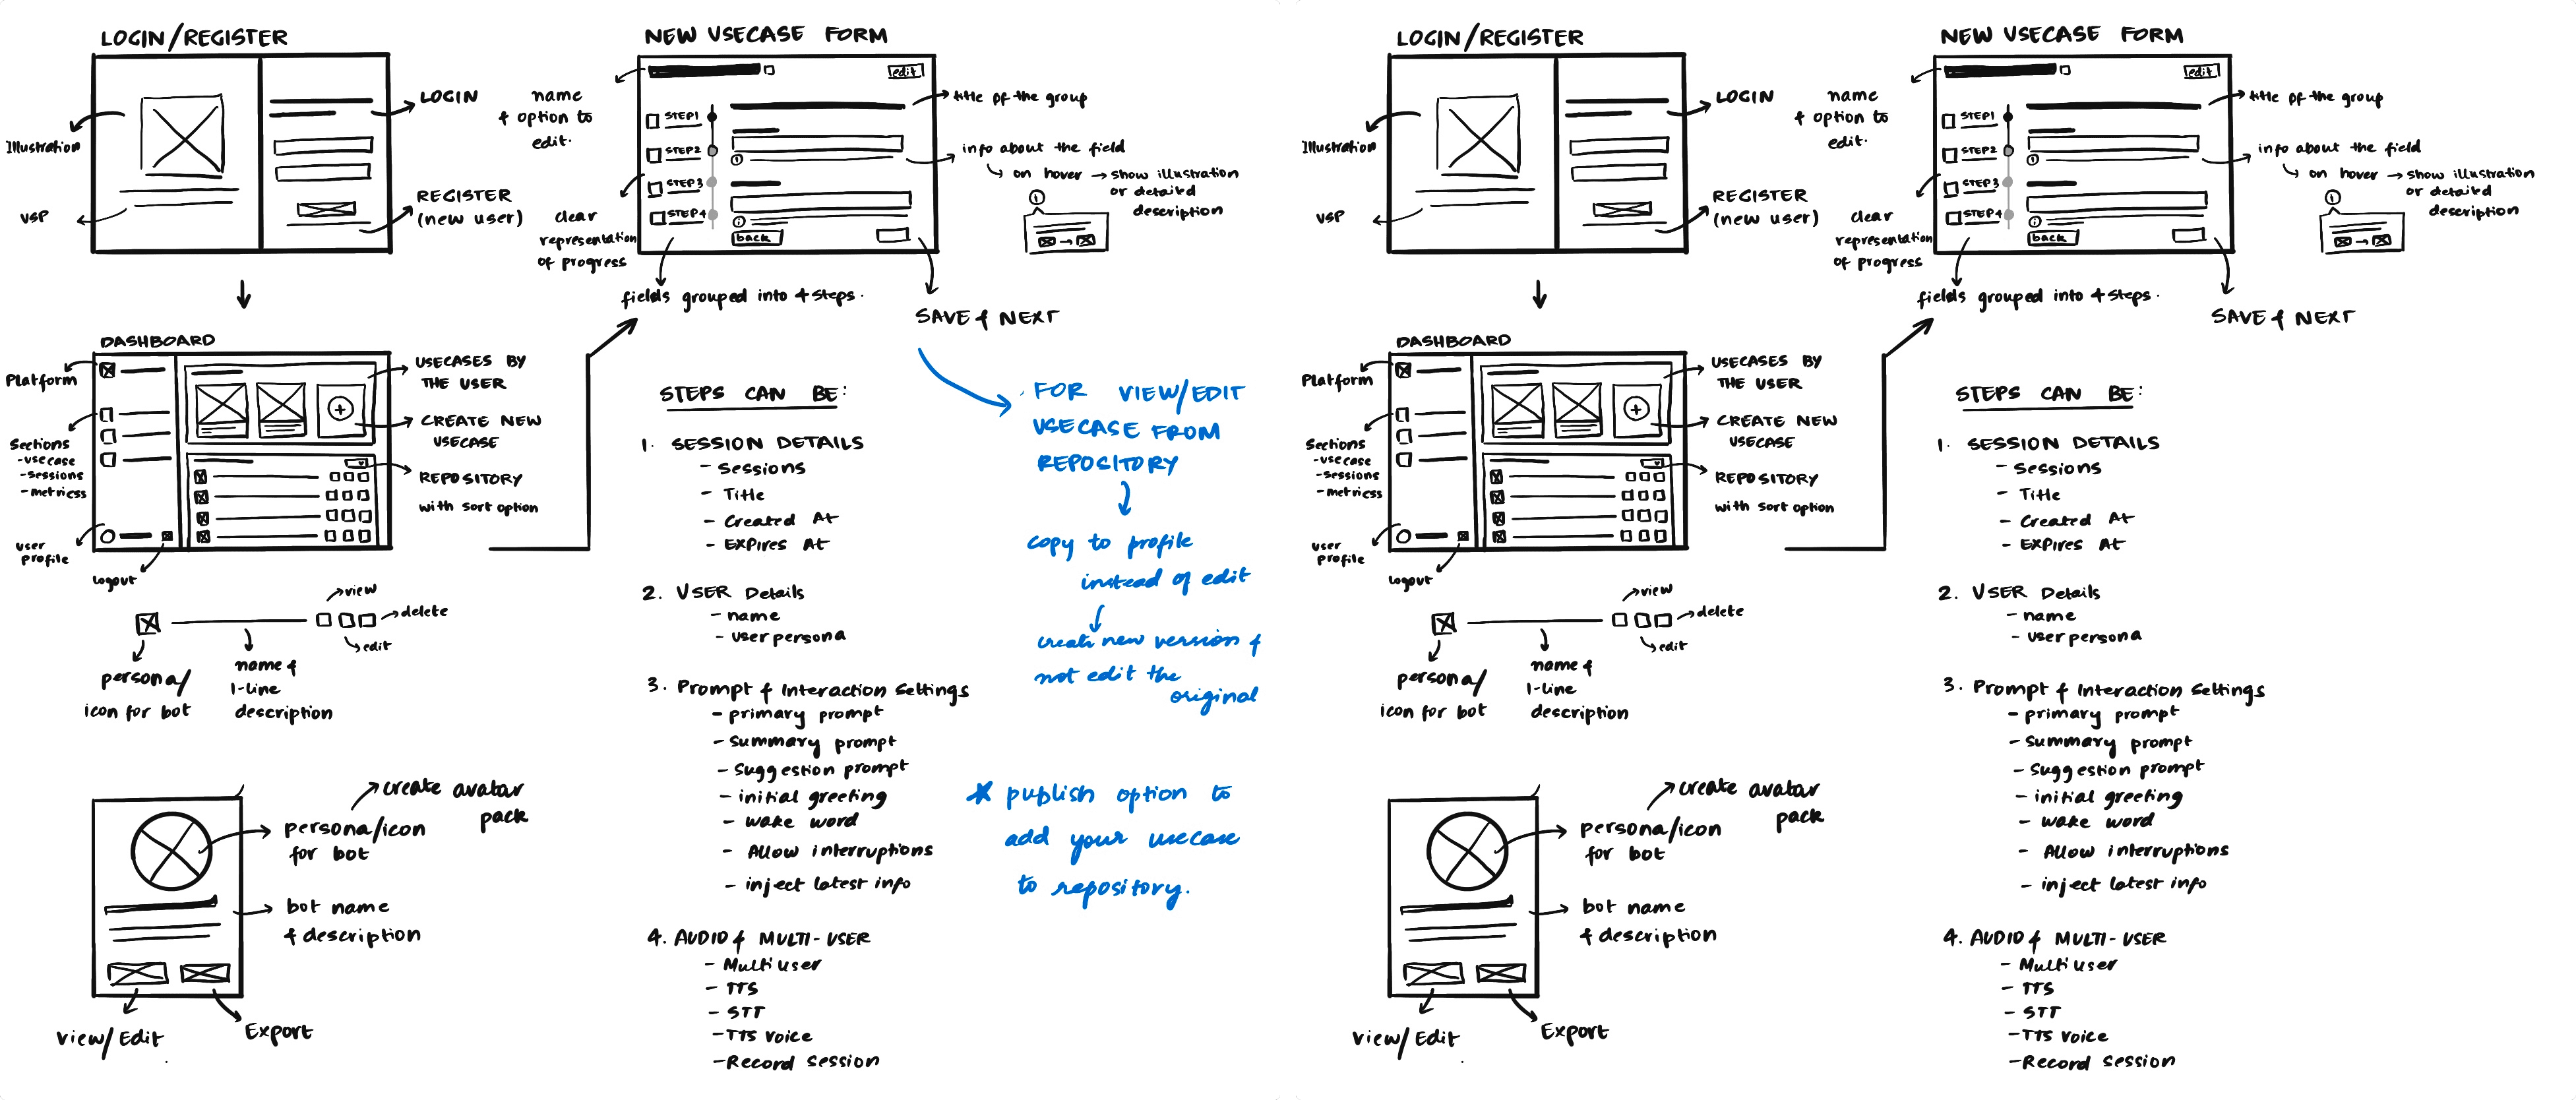 LOGIN/REGISTER
Illustration
USP
LOGIN
REGISTER
(new user)
NEW USECASE FORM
name
& option to
edit.
edit
STEP1
STEP2
STEP3
STEP4
back
title of the group
info about the field
on hover → show illustration
or detailed
description
clear
representation
of progress
fields grouped into 4 steps.
SAVE & NEXT
DASHBOARD
Platform
Sections
-usecase
-sessions
-metrics
user
profile
logout
USECASES BY
THE USER
CREATE NEW
USECASE
REPOSITORY
with sort option
view
delete
edit
persona/
icon for bot
name &
1-line
description
create avatar
pack
persona/icon
for bot
bot name
& description
view/Edit
Export
STEPS CAN BE:
1. SESSION DETAILS
- Sessions
- Title
- Created At
- Expires At
2. USER Details
- name
- user persona
3. Prompt & Interaction Settings
- primary prompt
- summary prompt
- suggestion prompt
- initial greeting
- wake word
- Allow interruptions
- inject latest info
4. AUDIO & MULTI-USER
- Multiuser
- TTS
- STT
- TTS voice
- Record session
FOR VIEW/EDIT
USECASE FROM
REPOSITORY
copy to profile
instead of edit
create new version &
not edit the
original
* publish option to
add your usecase
to repository.
LOGIN/REGISTER
Illustration
USP
LOGIN
REGISTER
(new user)
NEW USECASE FORM
name
& option to
edit.
edit
STEP1
STEP2
STEP3
STEP4
back
title of the group
info about the field
on hover → show illustration
or detailed
description
clear
representation
of progress
fields grouped into 4 steps.
SAVE & NEXT
DASHBOARD
Platform
Sections
-usecase
-sessions
-metrics
user
profile
logout
USECASES BY
THE USER
CREATE NEW
USECASE
REPOSITORY
with sort option
view
delete
edit
persona/
icon for bot
name &
1-line
description
create avatar
pack
persona/icon
for bot
bot name
& description
view/Edit
Export
STEPS CAN BE:
1. SESSION DETAILS
- Sessions
- Title
- Created At
- Expires At
2. USER Details
- name
- user persona
3. Prompt & Interaction Settings
- primary prompt
- summary prompt
- suggestion prompt
- initial greeting
- wake word
- Allow interruptions
- inject latest info
4. AUDIO & MULTI-USER
- Multiuser
- TTS
- STT
- TTS voice
- Record session